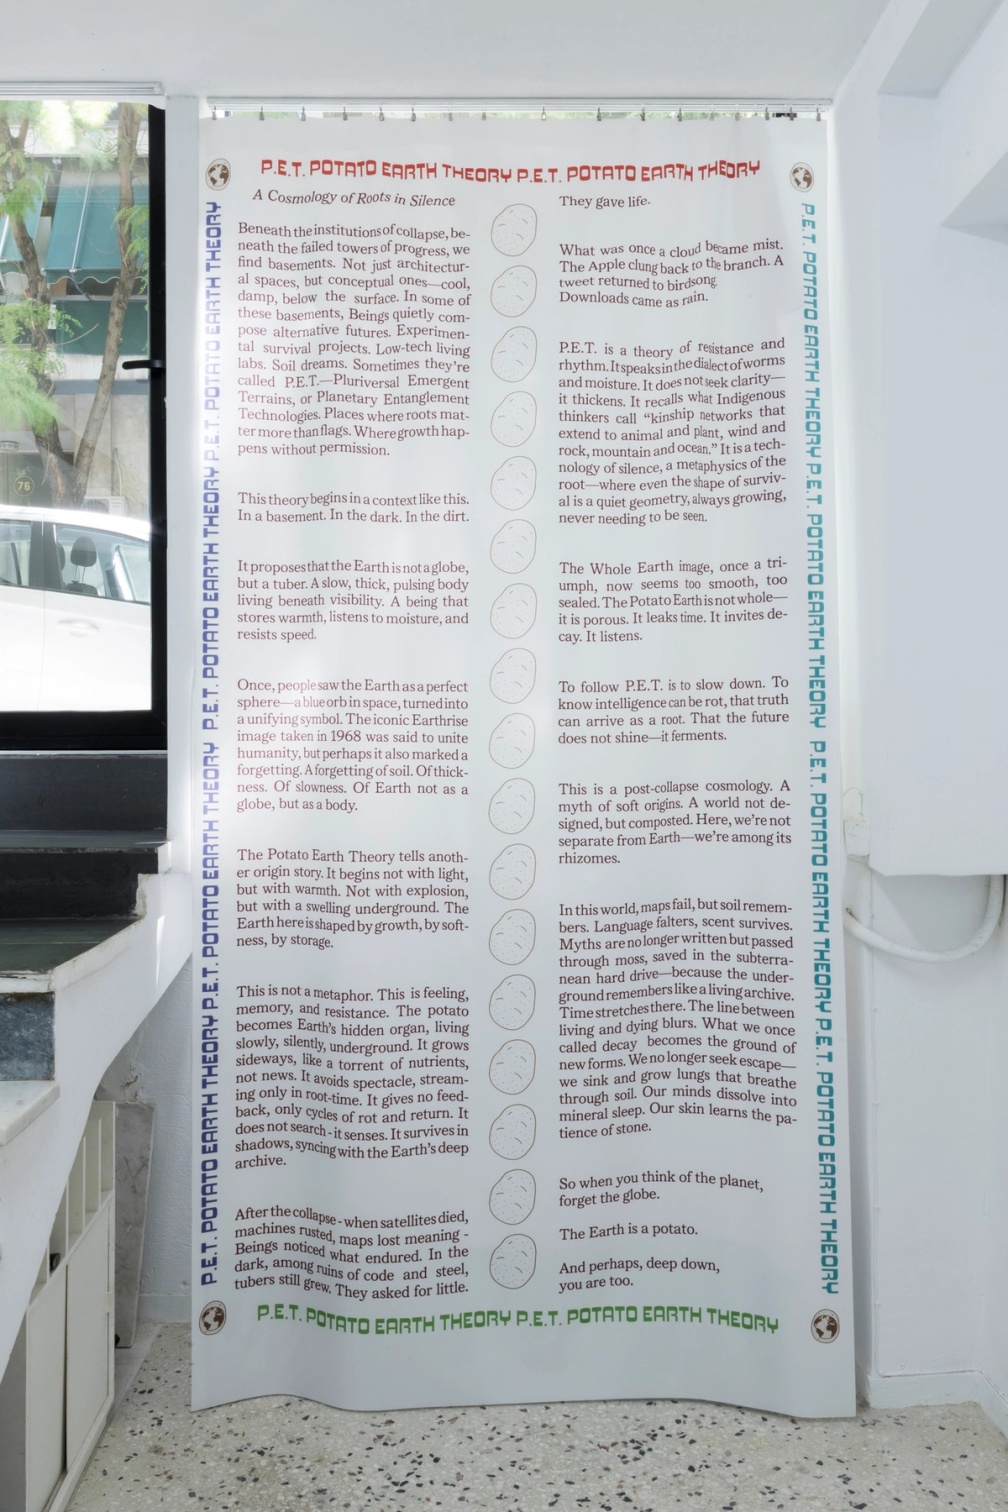 P.E.T. POTATO EARTH THEORY P.E.T. POTATO EARTH THEORY
P.E.T. POTATO EARTH THEORY P.E.T. POTATO EARTH THEORY P.E.T. POTATO EARTH THEORY P.E.T. POTATO EARTH THEORY
A Cosmology of Roots in Silence
Beneath the institutions of collapse, be-
neath the failed towers of progress, we
find basements. Not just architectur-
al spaces, but conceptual ones—cool,
damp, below the surface. In some of
these basements, Beings quietly com-
pose alternative futures. Experimen-
tal survival projects. Low-tech living
labs. Soil dreams. Sometimes they're
called P.E.T.—Pluriversal Emergent
Terrains, or Planetary Entanglement
Technologies. Places where roots mat-
ter more than flags. Where growth hap-
pens without permission.
This theory begins in a context like this.
In a basement. In the dark. In the dirt.
It proposes that the Earth is not a globe,
but a tuber. A slow, thick, pulsing body
living beneath visibility. A being that
stores warmth, listens to moisture, and
resists speed.
Once, people saw the Earth as a perfect
sphere—a blue orb in space, turned into
a unifying symbol. The iconic Earthrise
image taken in 1968 was said to unite
humanity, but perhaps it also marked a
forgetting. A forgetting of soil. Of thick-
ness. Of slowness. Of Earth not as a
globe, but as a body.
The Potato Earth Theory tells anoth-
er origin story. It begins not with light,
but with warmth. Not with explosion,
but with a swelling underground. The
Earth here is shaped by growth, by soft-
ness, by storage.
This is not a metaphor. This is feeling,
memory, and resistance. The potato
becomes Earth's hidden organ, living
slowly, silently, underground. It grows
sideways, like a torrent of nutrients,
not news. It avoids spectacle, stream-
ing only in root-time. It gives no feed-
back, only cycles of rot and return. It
does not search - it senses. It survives in
shadows, syncing with the Earth's deep
archive.
After the collapse - when satellites died,
machines rusted, maps lost meaning -
Beings noticed what endured. In the
dark, among ruins of code and steel,
tubers still grew. They asked for little.
They gave life.
What was once a cloud became mist.
The Apple clung back to the branch. A
tweet returned to birdsong.
Downloads came as rain.
P.E.T. is a theory of resistance and
rhythm. It speaks in the dialect of worms
and moisture. It does not seek clarity—
it thickens. It recalls what Indigenous
thinkers call “kinship networks that
extend to animal and plant, wind and
rock, mountain and ocean.” It is a tech-
nology of silence, a metaphysics of the
root—where even the shape of surviv-
al is a quiet geometry, always growing,
never needing to be seen.
The Whole Earth image, once a tri-
umph, now seems too smooth, too
sealed. The Potato Earth is not whole—
it is porous. It leaks time. It invites de-
cay. It listens.
To follow P.E.T. is to slow down. To
know intelligence can be rot, that truth
can arrive as a root. That the future
does not shine—it ferments.
This is a post-collapse cosmology. A
myth of soft origins. A world not de-
signed, but composted. Here, we're not
separate from Earth—we're among its
rhizomes.
In this world, maps fail, but soil remem-
bers. Language falters, scent survives.
Myths are no longer written but passed
through moss, saved in the subterra-
nean hard drive—because the under-
ground remembers like a living archive.
Time stretches there. The line between
living and dying blurs. What we once
called decay becomes the ground of
new forms. We no longer seek escape—
we sink and grow lungs that breathe
through soil. Our minds dissolve into
mineral sleep. Our skin learns the pa-
tience of stone.
So when you think of the planet,
forget the globe.
The Earth is a potato.
And perhaps, deep down,
you are too.
P.E.T. POTATO EARTH THEORY P.E.T. POTATO EARTH THEORY P.E.T. POTATO EARTH THEORY P.E.T. POTATO EARTH THEORY
P.E.T. POTATO EARTH THEORY P.E.T. POTATO EARTH THEORY
76